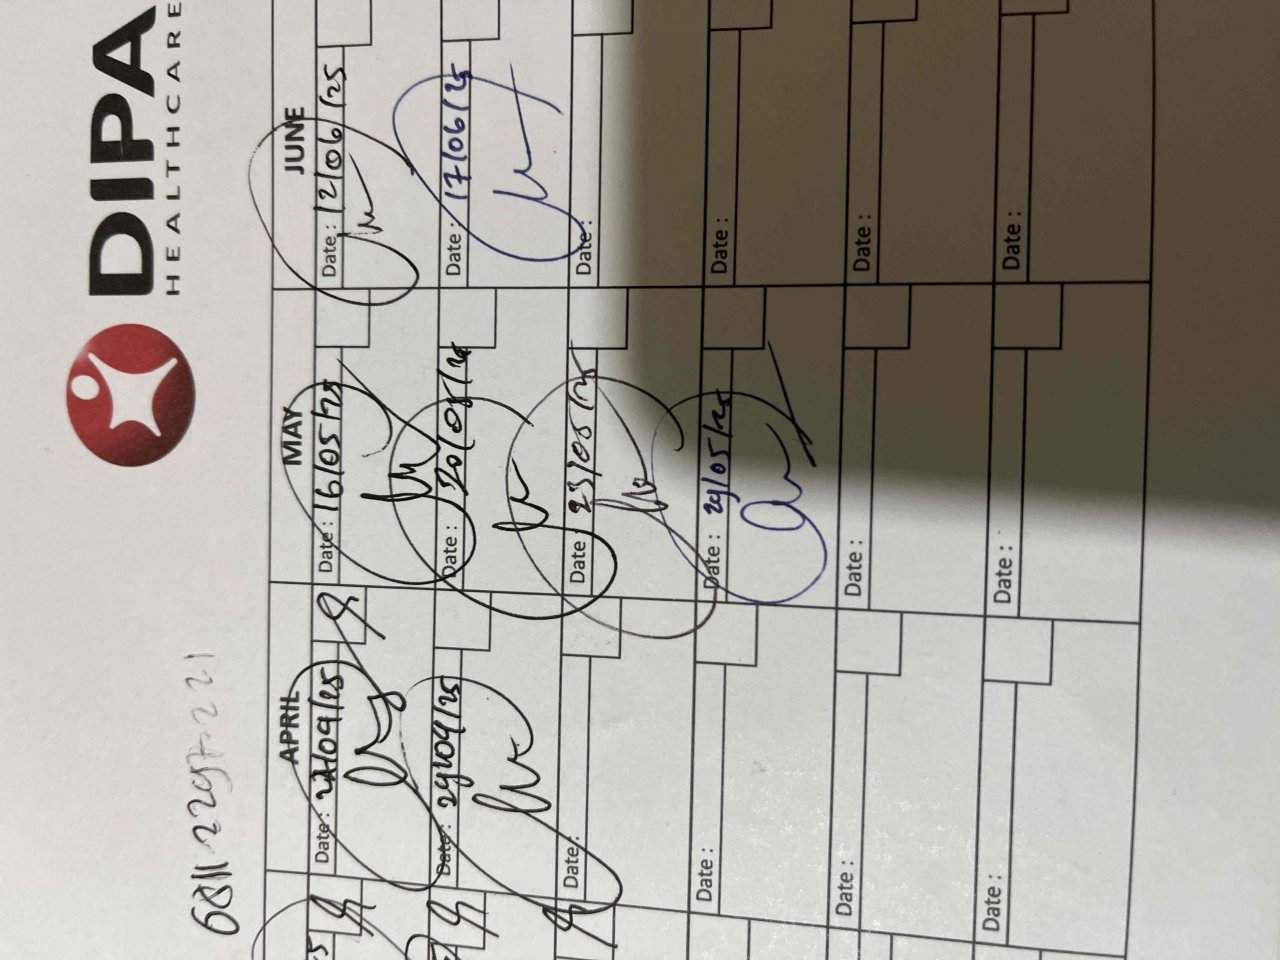 DIPA
HEALTHCARE
APRIL
MAY
JUNE
Date: 22/04/25
Date: 16/05/25
Date: 12/06/25
Date: 29/04/25
Date: 20/05/25
Date: 17/06/25
Date:
Date: 23/05/25
Date:
Date:
Date: 29/05/25
Date:
Date:
Date:
Date:
Date:
Date:
Date: